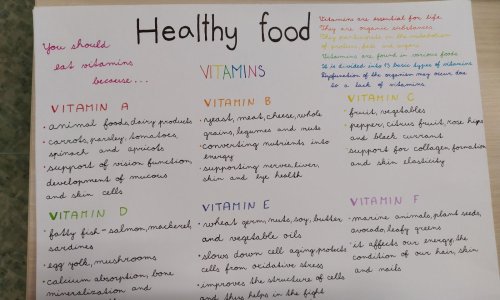 Healthy food
You should
eat vitamins
because...
Vitamins are essential for life.
They are organic substances.
They participate in the metabolism
of proteins, fats and sugars.
Vitamins are found in various foods.
It is divided into 13 basic types of vitamins.
Dysfunction of the organism may occur due
to a lack of vitamins
VITAMINS
VITAMIN A
• animal foods, dairy products
• carrots, parsley, tomatoes,
spinach and apricots
• support of vision function,
development of mucous
and skin cells
VITAMIN B
• yeast, meat, cheese, whole
grains, legumes and nuts
• converting nutrients into
energy
• supporting nerves, liver,
skin and eye health
VITAMIN C
• fruit, vegetables
• pepper, citrus fruit, rose hips
and black currant
• support for collagen formation
and skin elasticity
VITAMIN D
• fatty fish - salmon, mackerel,
sardines
• egg yolk, mushrooms
• calcium absorption, bone
mineralization and
VITAMIN E
• wheat germ, nuts, soy, butter
and vegetable oils
• slows down cell aging, protects
cells from oxidative stress
• improves the structure of cells
and thus helps in the fight
VITAMIN F
• marine animals, plant seeds,
avocado, leafy greens
• it affects our energy, the
condition of our hair, skin
and nails